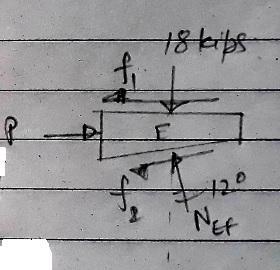 18 kips
f₁
P
E
f₂
12°
N_EF